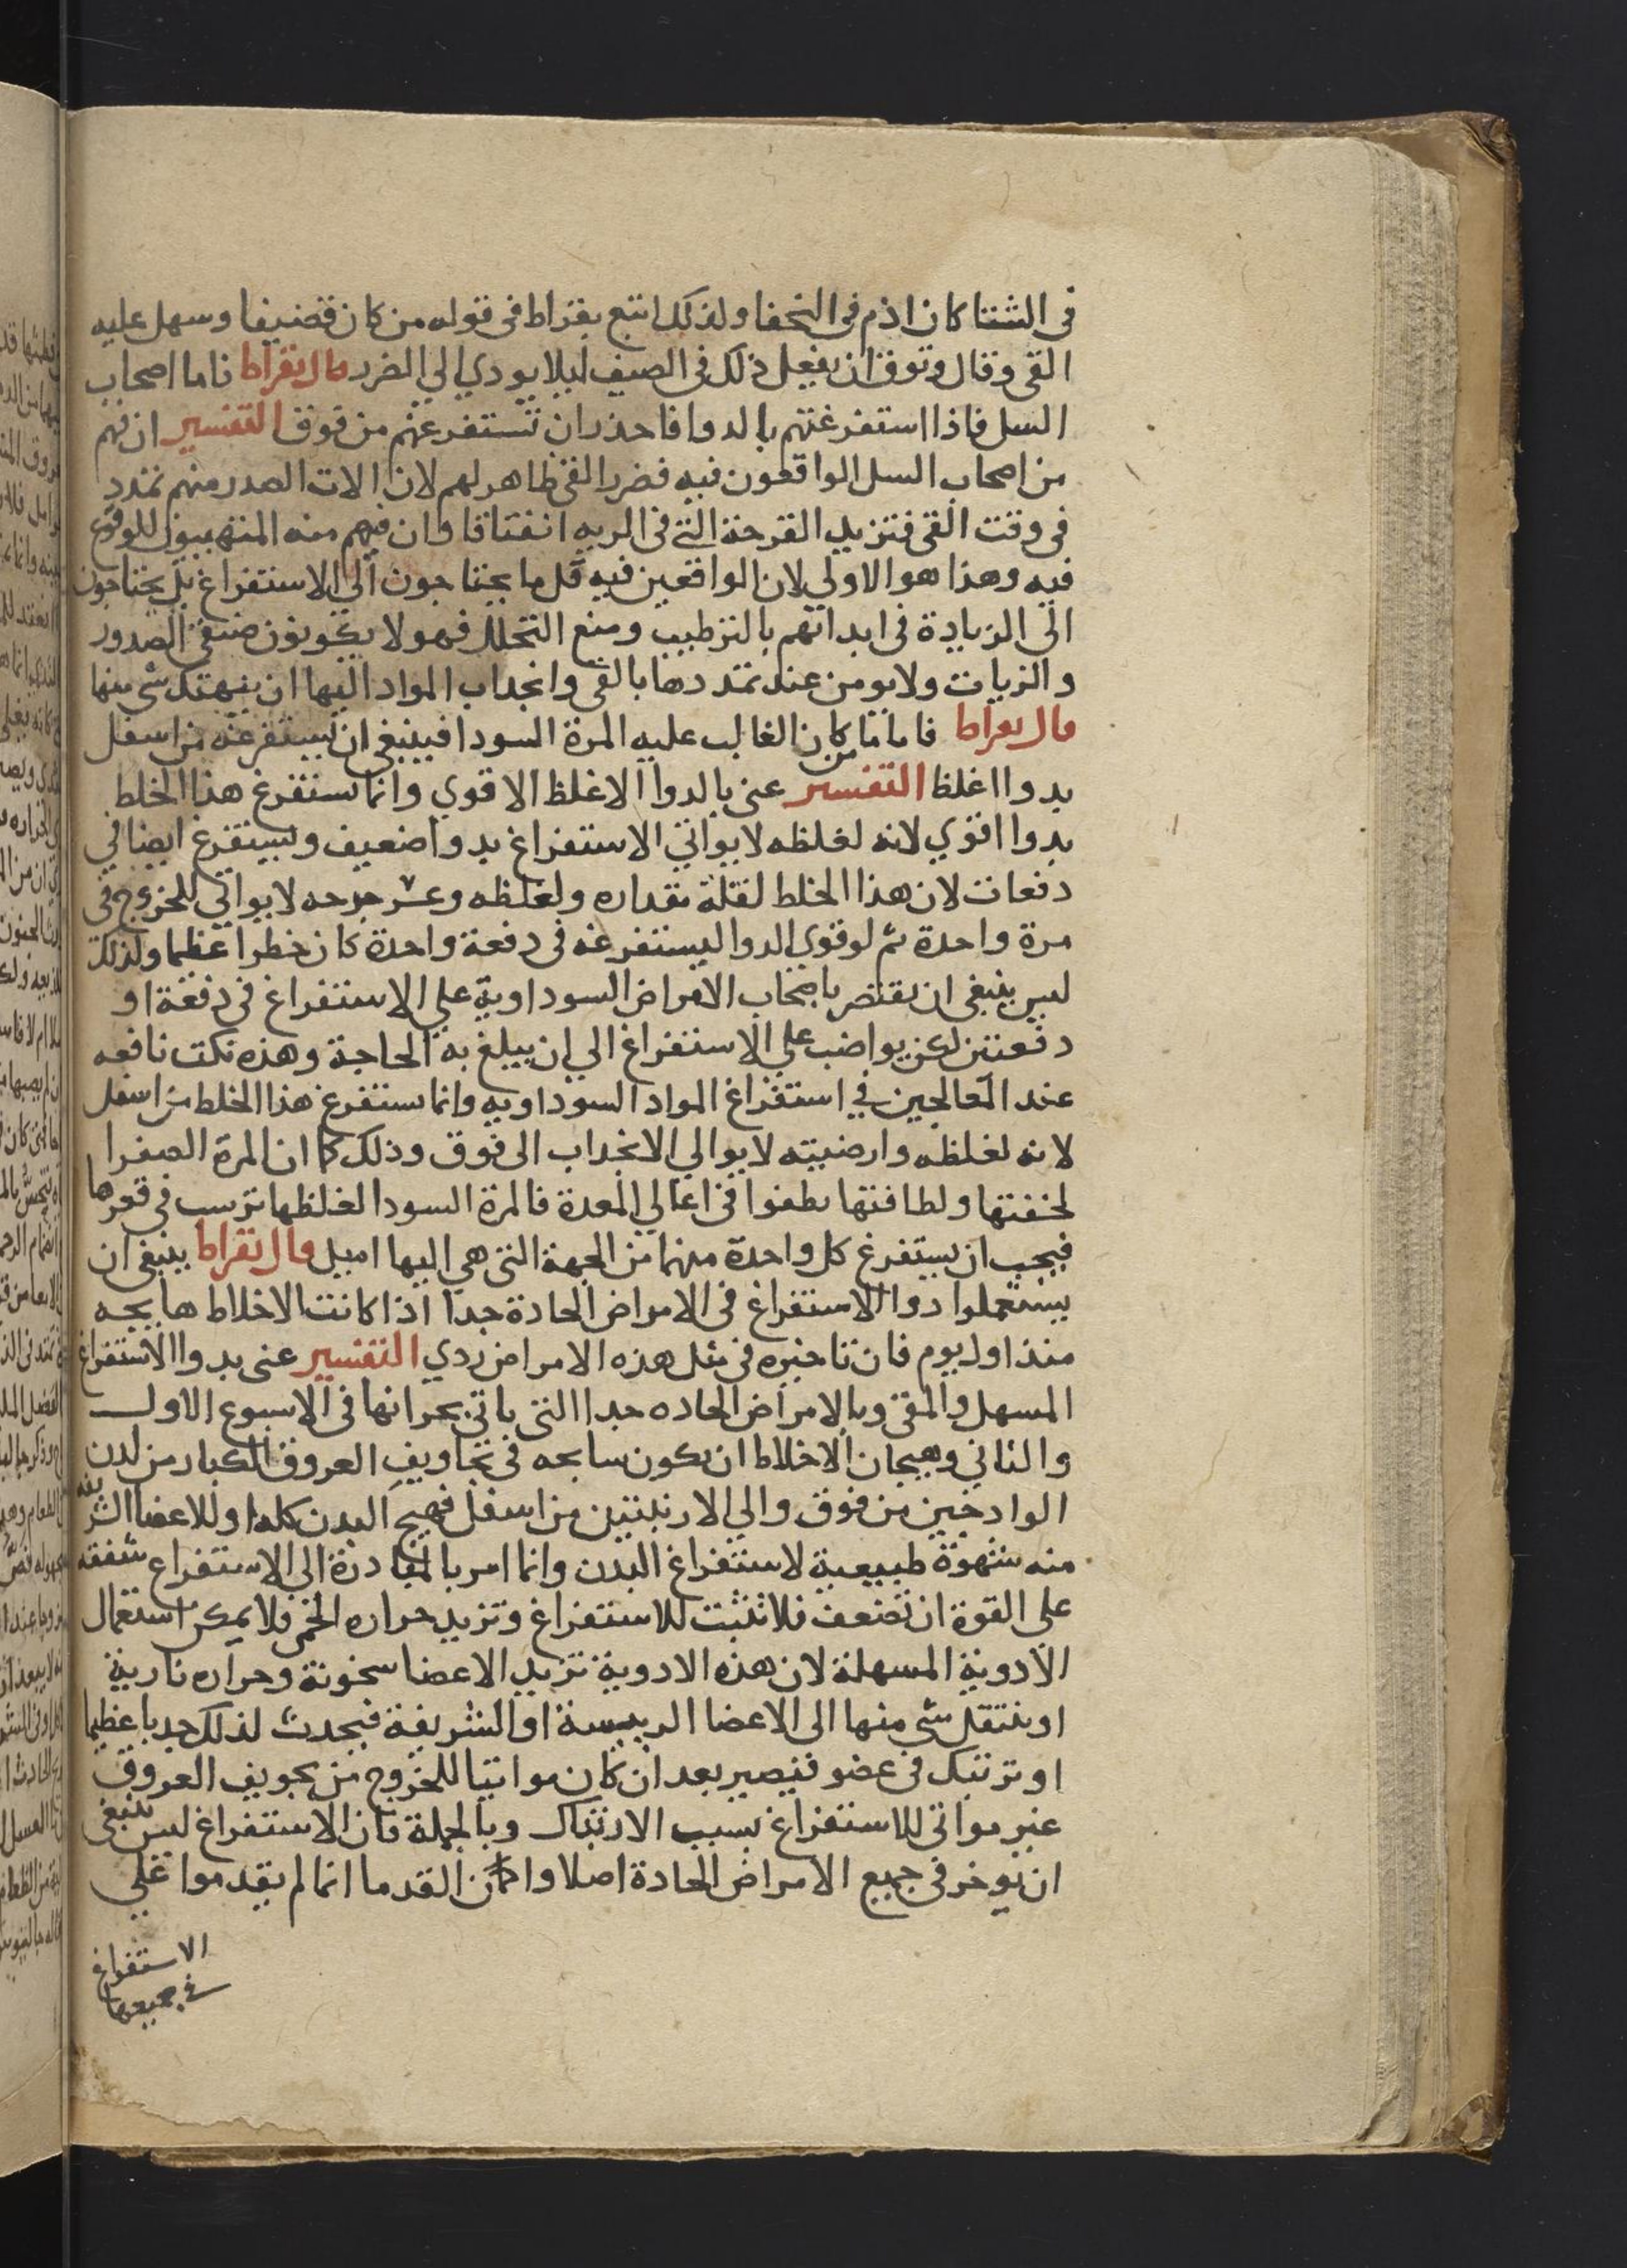 في الشتا كان اذم في النحفا ولذلك اتبع بقراط في قوله من كان قضيفا وسهل عليه
القي وقال وتوق ان يفعل ذلك في الصيف ليلا يودي الي الضرر قال بقراط فاما اصحاب
السل فاذا استفرغتهم بالدوا فاحذر ان تستفرغهم من فوق التفسير ان فهم
من اصحاب السل الواقعون فيه فضرر القي ظاهر لهم لان الات الصدر منهم تمتدد
في وقت القي فتزيد القرحة التي في الريه انفتاقا وان فهم منه المتهيبون للوقوع
فيه وهذا هو الاولي لان الواقعين فيه قل ما يحتاجون الي الاستفراغ بل يحتاجون
الي الزيادة في ابدانهم بالترطيب ومنع التحلل فهولا يكونون ضيقي الصدور
والريات ولا يومن عند تمددها بالقي وانجذاب المواد اليها ان ينهتك شي منها
قال بقراط فاما من كان الغالب عليه المرة السودا فينبغي ان يستفرغه من اسفل
بدوا اغلظ التفسير عني بالدوا الاغلظ الاقوي وانما يستفرغ هذا الخلط
بدوا اقوي لانه لغلظه لا يواتي الاستفراغ بدوا ضعيف ويستفرغ ايضا في
دفعات لان هذا الخلط لقلة مقداره ولغلظه وعسر جرحه لا يواتي للخروج في
مرة واحدة ثم لو قوي الدوا ليستفرغه في دفعة واحدة كان خطرا عظيما ولذلك
ليس ينبغي ان يقتصر باصحاب الامراض السوداوية علي الاستفراغ في دفعة او
دفعتين لكن يواضب علي الاستفراغ الي ان يبلغ به الحاجة وهذه نكت نافعه
عند المعالجين في استفراغ المواد السوداويه وانما يستفرغ هذا الخلط من اسفل
لانه لغلظه وارضيته لا يوالي الانجذاب الي فوق وذلك كما ان المرة الصفرا
لخفتها ولطافتها يطفوا في اعالي المعدة فالمرة السودا لغلظها ترسب في قعرها
فيجب ان يستفرغ كل واحدة منهما من الجهة التي هي اليها اميل قال بقراط ينبغي ان
يستعملوا دوا الاستفراغ في الامراض الحادة جدا اذا كانت الاخلاط هايجه
منذ اول يوم فان تاخيره في مثل هذه الامراض ردي التفسير عني بدوا الاستفراغ
المسهل والمقي وبالامراض الحاده جدا التي ياتي بحرانها في الاسبوع الاول
والثاني وهيجان الاخلاط ان يكون سايحه في تجاويف العروق الكبار من لدن
الوادجين من فوق والي الاربيتين من اسفل فهيج البدن كله او للاعضا الشريفه
منه شهوة طبيعية لاستفراغ البدن وانما امر بالمبادرة الي الاستفراغ شفقه
علي القوة ان تضعف فلا تثبت للاستفراغ وتزيد حراره الحمي ولا يمكن استعمال
الادوية المسهلة لان هذه الادوية تزيد الاعضا سخونة وحراره نارية
او ينتقل شي منها الي الاعضا الرييسة او الشريفة فيحدث لذلك حدبا عظيما
او ترتبك في عضو فيصير بعد ان كان مواتيا للخروج من تجويف العروق
غير مواتي للاستفراغ بسبب الارتباك وبالجملة فان الاستفراغ ليس ينبغي
ان يوخر في جميع الامراض الحادة اصلا وان كان القدما انما لم يقدموا علي
الاستفراغ
في جميعها